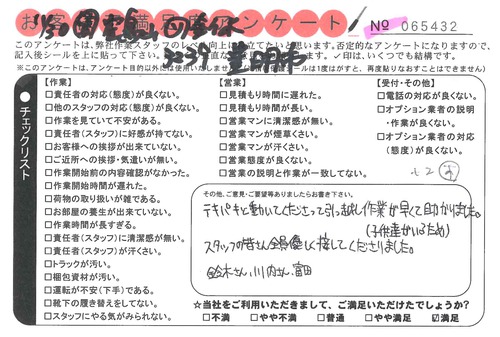 お客 満足 アンケート
No 065432
このアンケートは、弊社作業スタッフのレベル向上に役立てたいと思います。否定的なアンケートになりますので、
記入後シールを上に貼って下さい。
い。✓印は、いくつでも結構です。
※このアンケートは、アンケート目的以外には使用いたしません
シールは1度はがすと、再度貼りなおすことはできません)
チェックリスト
【作業】
□責任者の対応(態度)が良くない。
□他のスタッフの対応(態度)が良くない。
□作業を見ていて不安がある。
□責任者(スタッフ)に好感が持てない。
□お客様への挨拶が出来ていない。
□ご近所への挨拶・気遣いが無い。
□作業開始前の内容確認がなかった。
□作業開始時間が遅れた。
□荷物の取り扱いが雑である。
□お部屋の養生が出来ていない。
□作業時間が長すぎる。
□責任者(スタッフ)に清潔感が無い。
□責任者(スタッフ)が汗くさい。
□トラックが汚い。
□梱包資材が汚い。
□運転が不安(下手)である。
□靴下の履き替えをしてない。
□スタッフにやる気がみられない。
【営業】
□見積もり時間に遅れた。
□見積もり時間が長い。
□営業マンに清潔感が無い。
□営業マンが煙草くさい。
□営業マンが汗くさい。
□営業態度が良くない。
□営業の説明と作業が一致してない。
【受付・その他】
□電話の対応が良くない。
□オプション業者の説明
・作業が良くない。
□オプション業者の対応
(態度)が良くない。
その他、ご意見・ご要望等ありましたらお書き下さい。
テキパキと動いてくださって引っ越し作業が早くて助かりました。
(子供達がいるため)
スタッフの皆さん全員優しく接してくださりました。
鈴木さん、川内さん、富田
☆当社をご利用いただきまして、ご満足いただけたでしょうか?
□不満 □やや不満 □普通 □やや満足 ☑満足